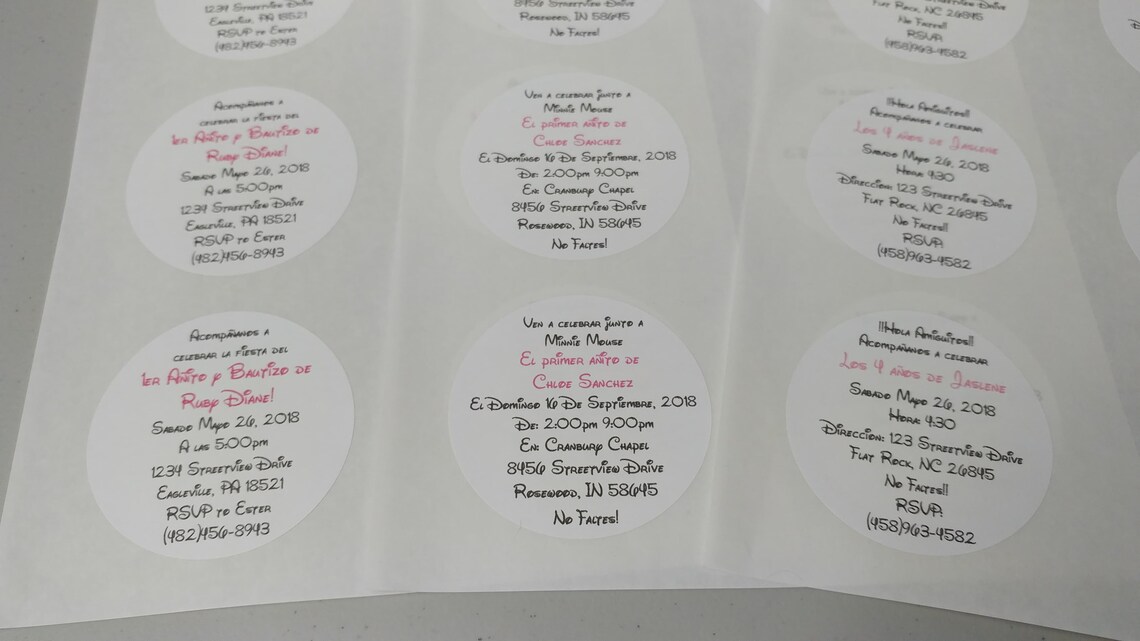 1234 Streetview Drive
Eagleville, PA 18521
RSVP to Ester
(482)456-8943
8456 Streetview Drive
Rosewood, IN 58645
No Faltes!
Direccion: 123 Streetview Drive
Flat Rock, NC 26845
No Faltes!!
RSVP.
(458)963-4582
Acompáñanos a
celebrar la fiesta del
1er Añito y Bautizo de
Ruby Diane!
Sabado Mayo 26, 2018
A las 5:00pm
1234 Streetview Drive
Eagleville, PA 18521
RSVP to Ester
(482)456-8943
Ven a celebrar junto a
Minnie Mouse
El primer añito de
Chloe Sanchez
El Domingo 16 De Septiembre, 2018
De: 2:00pm 9:00pm
En: Cranbury Chapel
8456 Streetview Drive
Rosewood, IN 58645
No Faltes!
!!Hola Amiguitos!!
Acompañanos a celebrar
Los 4 años de Jaslene
Sabado Mayo 26, 2018
Hora: 4:30
Direccion: 123 Streetview Drive
Flat Rock, NC 26845
No Faltes!!
RSVP.
(458)963-4582
Acompáñanos a
celebrar la fiesta del
1er Añito y Bautizo de
Ruby Diane!
Sabado Mayo 26, 2018
A las 5:00pm
1234 Streetview Drive
Eagleville, PA 18521
RSVP to Ester
(482)456-8943
Ven a celebrar junto a
Minnie Mouse
El primer añito de
Chloe Sanchez
El Domingo 16 De Septiembre, 2018
De: 2:00pm 9:00pm
En: Cranbury Chapel
8456 Streetview Drive
Rosewood, IN 58645
No Faltes!
!!Hola Amiguitos!!
Acompañanos a celebrar
Los 4 años de Jaslene
Sabado Mayo 26, 2018
Hora: 4:30
Direccion: 123 Streetview Drive
Flat Rock, NC 26845
No Faltes!!
RSVP.
(458)963-4582